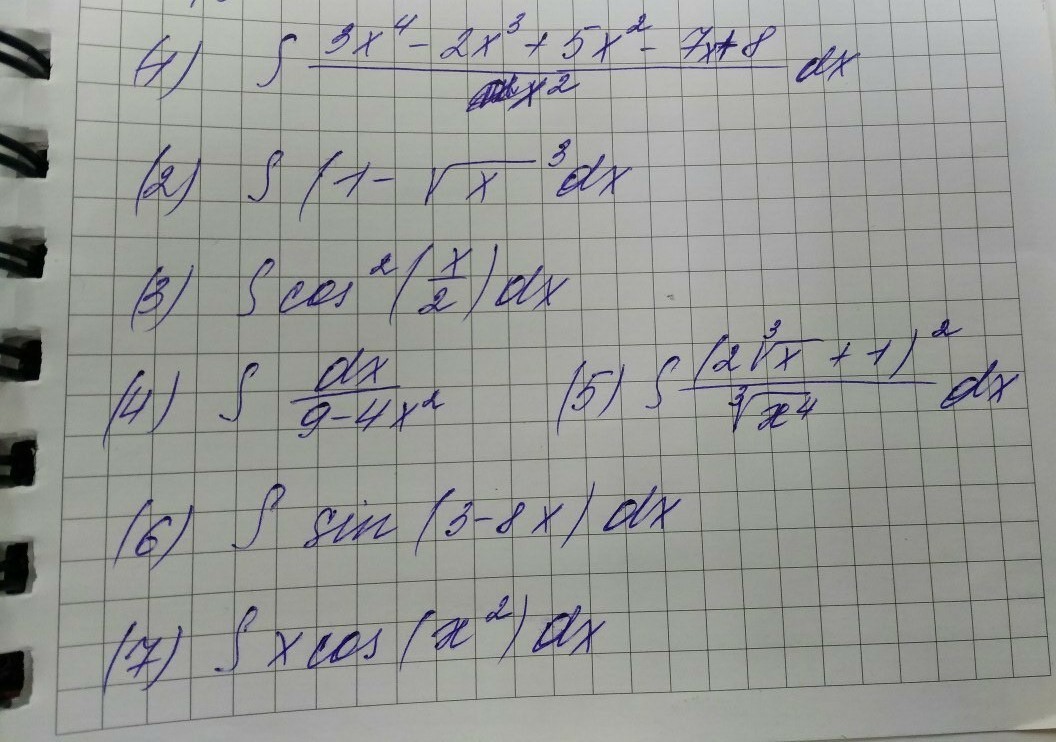 (1) ∫ (3x⁴ - 2x³ + 5x² - 7x+8)/x² dx
(2) ∫ (1 - √x ³dx
(3) ∫ cos² (x/2) dx
(4) ∫ dx/(9-4x²) (5) ∫ (2∛x + 1)²/∛x⁴ dx
(6) ∫ sin (3-8x) dx
(7) ∫ x cos (x²) dx